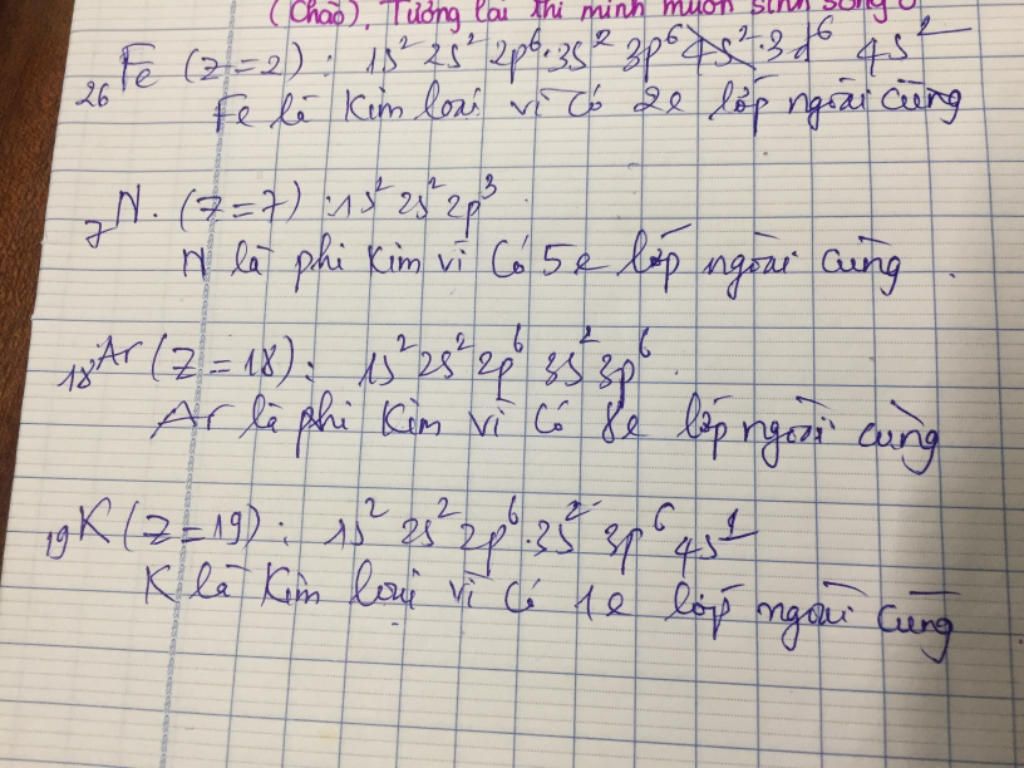 (Chào). Tương lai thì mình muốn sinh sống ở
₂₆Fe (Z=2): 1s² 2s² 2p⁶.3s² 3p⁶ 4s².3d⁶ 4s²
Fe là kim loại vì có 2e lớp ngoài cùng
₇N. (Z=7): 1s² 2s² 2p³
N là phi kim vì có 5e lớp ngoài cùng.
₁₈Ar (Z=18): 1s² 2s² 2p⁶ 3s² 3p⁶.
Ar là phi kim vì có 8e lớp ngoài cùng
₁₉K (Z=19): 1s² 2s² 2p⁶.3s² 3p⁶ 4s¹
K là kim loại vì có 1e lớp ngoài cùng